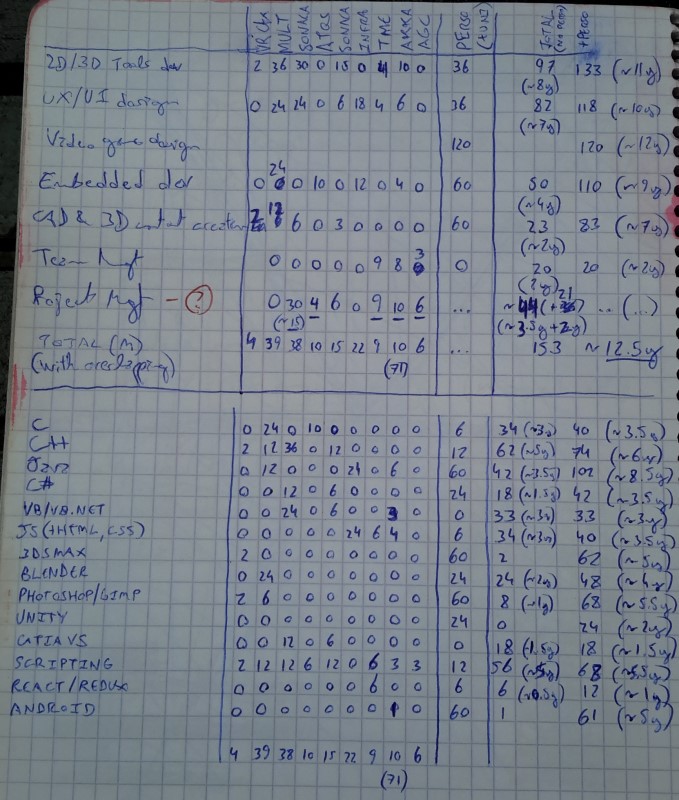 MULT SONACA ATOS SONACA INFRA TMC AKKA AGC PERSO (+UNI) TOTAL +PERSO
2D/3D Tools dev 2 36 30 0 15 0 4 10 0 36 97 133 (~11y)
(~8y)
UX/UI design 0 24 24 0 6 18 4 6 0 36 82 118 (~10y)
(~7y)
Video game design 120 120 (~12y)
24
Embedded dev 0 0 10 0 12 0 4 0 60 50 110 (~9y)
(~4y)
12
CAD & 3D content 2 6 0 3 0 0 0 0 60 23 83 (~7y)
(~2y)
3
Team Mgt 0 0 0 0 0 9 8 0 20 20 (~2y)
(2y)
Project Mgt - (?) 0 30 4 6 0 9 10 6 ... ~44 21 .. (...)
(~15) (~3.5y + 2y)
TOTAL (M) 4 39 38 10 15 22 9 10 6 ... 153 ~12.5y
(with overlapping) (71)
C 0 24 0 10 0 0 0 0 0 6 34 (~3y) 40 (~3.5y)
C++ 2 12 36 0 12 0 0 0 0 12 62 (~5y) 74 (~6y)
0 12 0 0 0 24 0 6 0 60 42 (~3.5y) 102 (~8.5y)
C# 0 0 12 0 6 0 0 0 0 24 18 (~1.5y) 42 (~3.5y)
VB/VB.NET 0 0 24 0 6 0 0 3 0 0 33 (~3y) 33 (~3y)
JS (+HTML, CSS) 0 0 0 0 0 24 6 4 0 6 34 (~3y) 40 (~3.5y)
3DSMAX 2 0 0 0 0 0 0 0 0 60 2 62 (~5y)
BLENDER 0 24 0 0 0 0 0 0 0 24 24 (~2y) 48 (~4y)
PHOTOSHOP/GIMP 2 6 0 0 0 0 0 0 0 60 8 (~1y) 68 (~5.5y)
UNITY 0 0 0 0 0 0 0 0 0 24 0 24 (~2y)
CATIA V5 0 0 12 0 6 0 0 0 0 0 18 (~1.5y) 18 (~1.5y)
SCRIPTING 2 12 12 6 12 0 6 3 3 12 56 (~5y) 68 (~5.5y)
REACT/REDUX 0 0 0 0 0 0 6 0 0 6 6 (~0.5y) 12 (~1y)
ANDROID 0 0 0 0 0 0 0 1 0 60 1 61 (~5y)
4 39 38 10 15 22 9 10 6
(71)